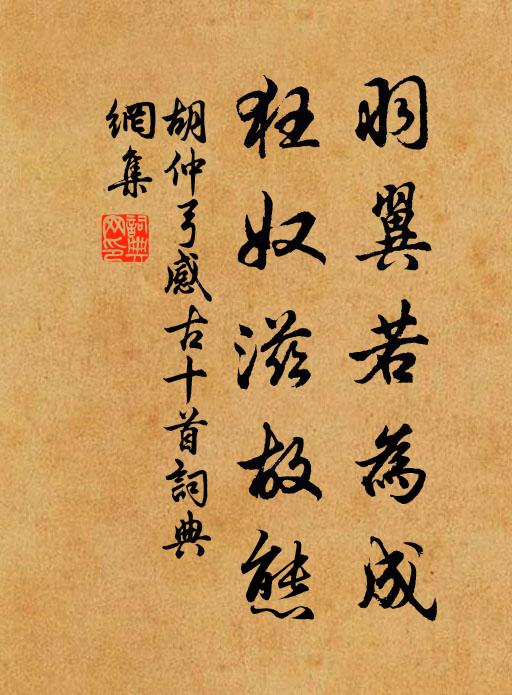 羽翼若為成
狂奴滋故態
胡仲弓感古十首詞典
網集
詞典
网印